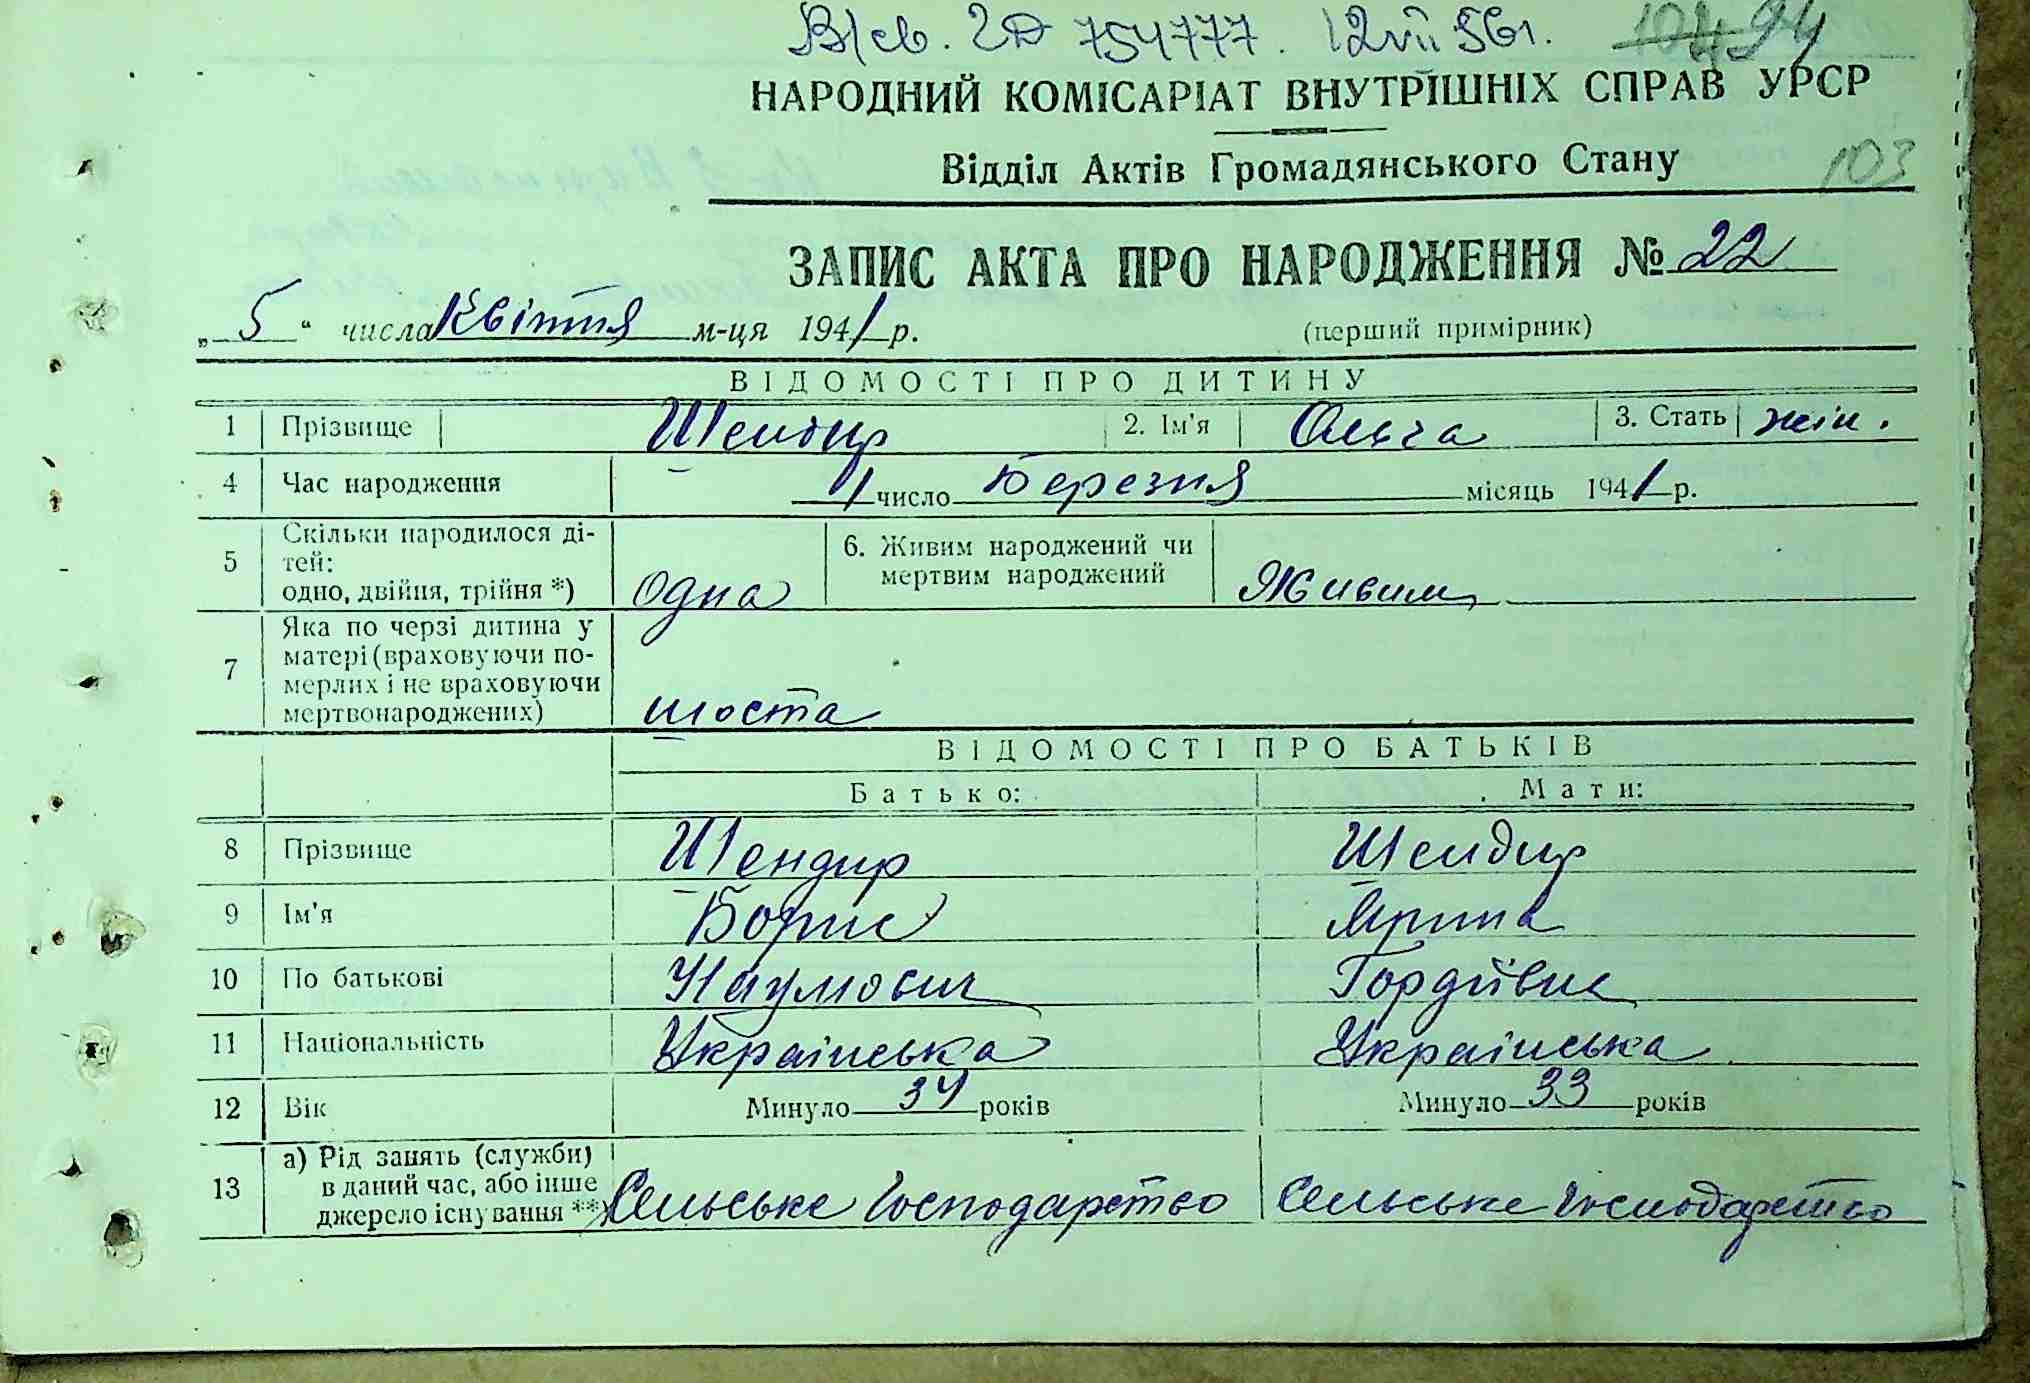 В/св. 2D 754777. 12 VII 56 г. 10494
НАРОДНИЙ КОМІСАРІАТ ВНУТРІШНІХ СПРАВ УРСР
Відділ Актів Громадянського Стану 103
ЗАПИС АКТА ПРО НАРОДЖЕННЯ № 22
„5“ числа Квіття м-ця 1941 р. (перший примірник)
ВІДОМОСТІ ПРО ДИТИНУ
1 Прізвище Шендир 2. Ім'я Ольга 3. Стать жін.
4 Час народження 1 число Березня місяць 1941 р.
5 Скільки народилося ді-
тей:
одно, двійня, трійня *) Одна 6. Живим народжений чи
мертвим народжений Живим
7 Яка по черзі дитина у
матері (враховуючи по-
мерлих і не враховуючи
мертвонароджених) шоста
ВІДОМОСТІ ПРО БАТЬКІВ
Батько: Мати:
8 Прізвище Шендир Шендир
9 Ім'я Борис Ярина
10 По батькові Наумович Гордіївна
11 Національність Українська Українська
12 Вік Минуло 34 років Минуло 33 років
13 а) Рід занять (служби)
в даний час, або інше
джерело існування **) Сельське Господарство Сельське Господарство